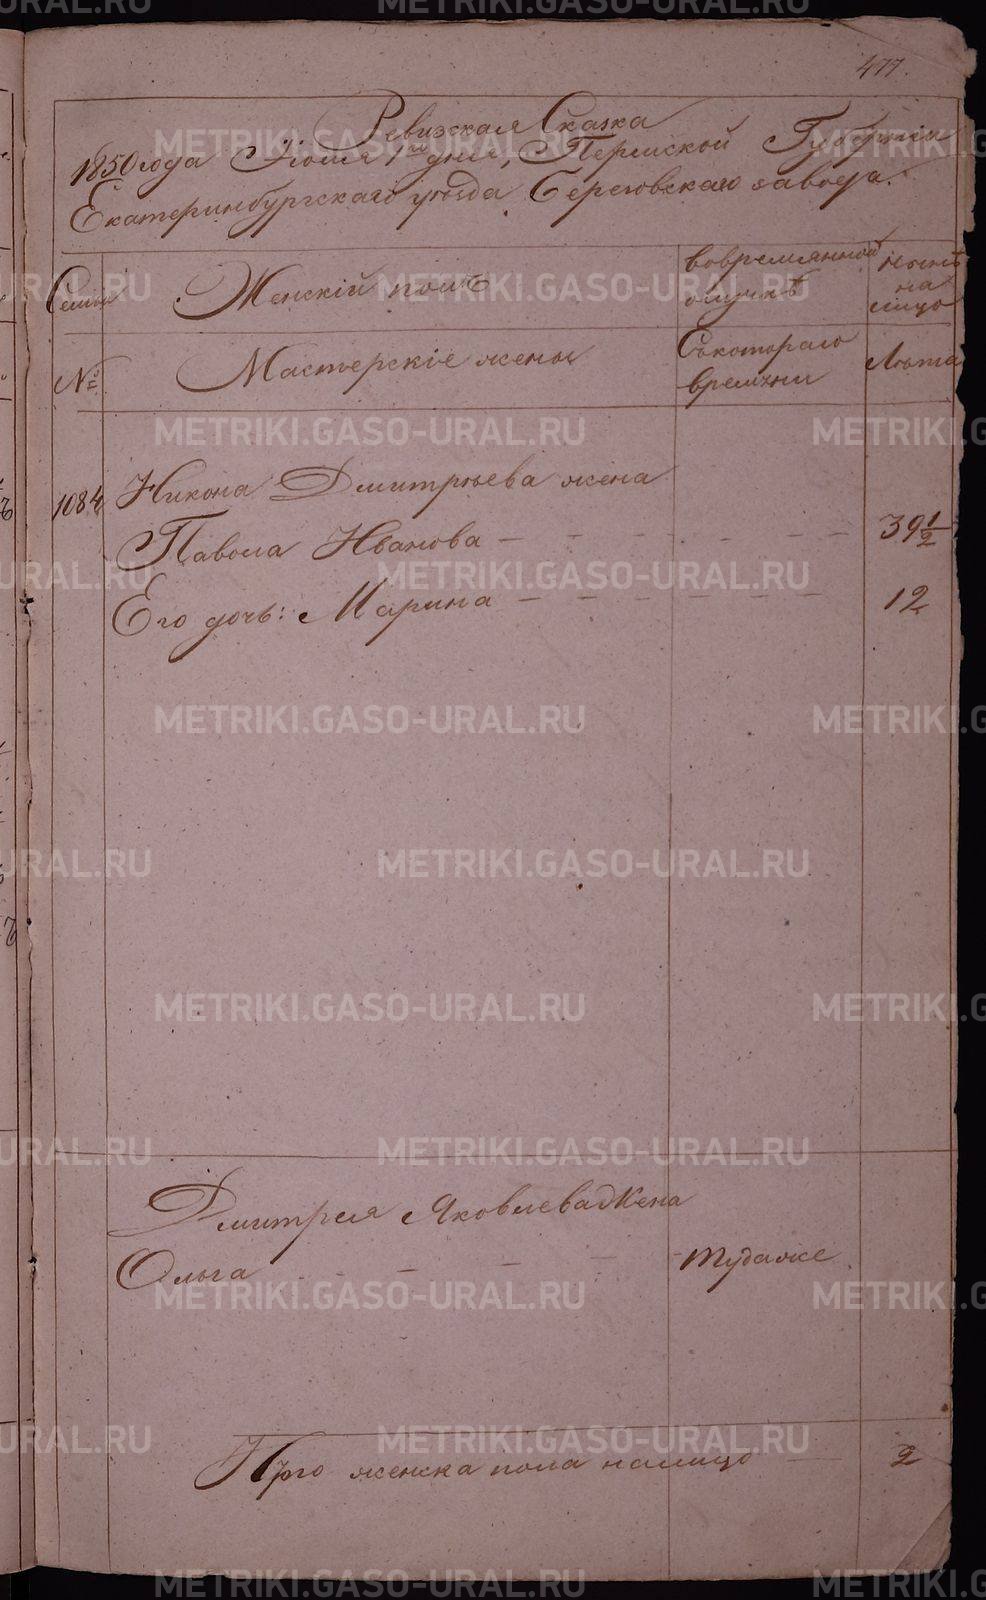 477.
Ревизская Сказка
1850 года Июля 1го дня, Пермской Губернии
Екатеринбургскаго уезда Березовскаго завода.
Семьи
Женскiй полъ
вовремянной
отлучкѣ
нынѣ
на
лицо
№
Мастерскiе жены
Съкотораго
времени
Лѣта
1084
Никона Дмитрiева жена
Павола Иванова
39 1/2
Его дочь: Марина
12
Дмитрея Яковлева Жена
Ольга
тудаже
Итого женска пола налицо
2
METRIKI.GASO-URAL.RU